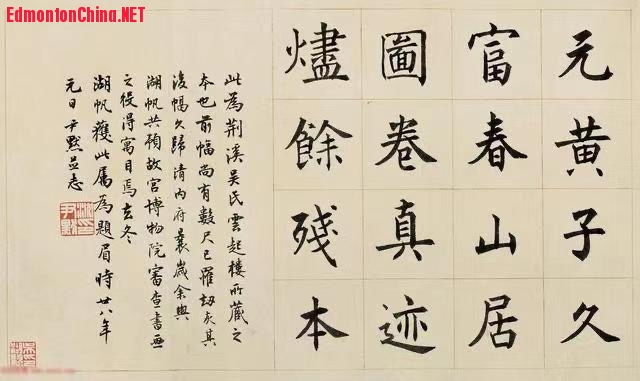 EdmontonChina.NET
元黃子久
富春山居
圖卷真迹
燼餘殘本
此為荆溪吳氏雲起樓所藏之
本也前幅尚有數尺已罹劫灰其
後幅久歸清內府曩歲余與
湖帆共預故宮博物院審查書畫
之役得寓目焉去冬
湖帆獲此屬為題眉時廿八年
元日尹默並志